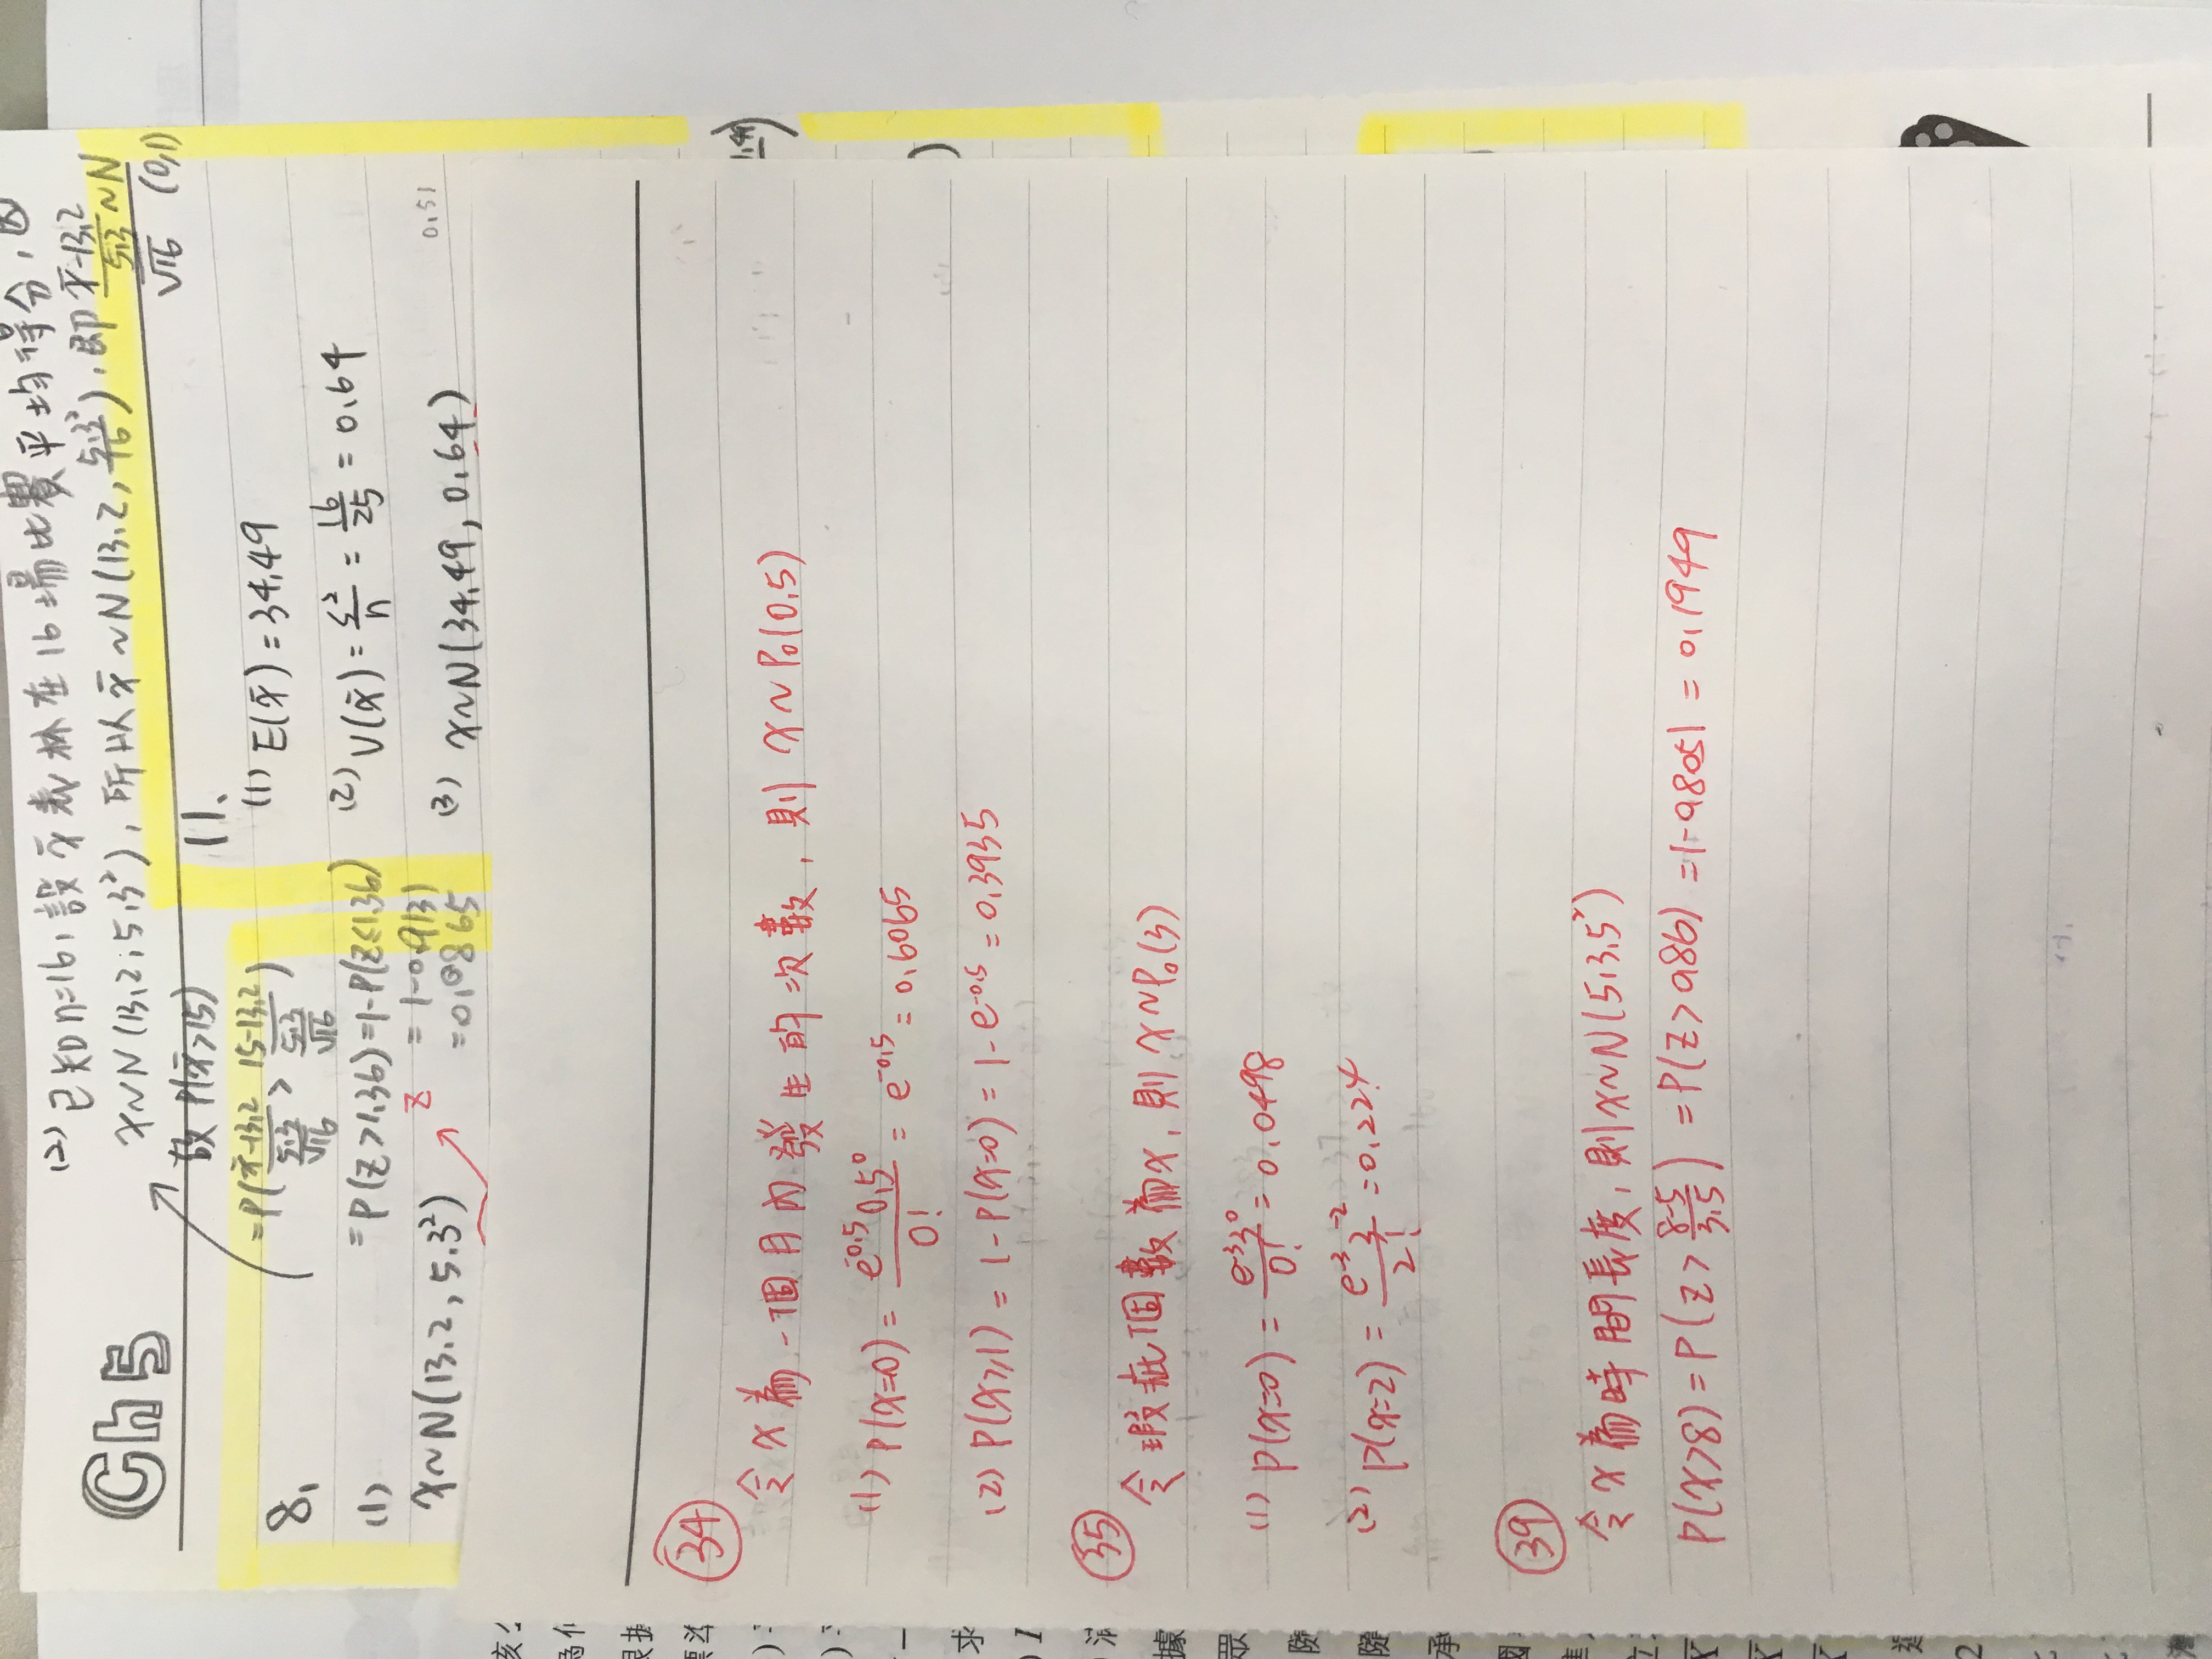 (2) 已知 n=16, 設 x̄ 表林在 16 場比賽平均得分, 因
x~N(13.2, 5.3²), 所以 x̄~N(13.2, 5.3²/16), 即 (x̄-13.2)/(5.3/√16) ~N(0,1)
Ch5
故 P(x̄>15)
=P((x̄-13.2)/(5.3/√16) > (15-13.2)/(5.3/√16))
=P(Z>1.36)=1-P(Z≤1.36)
=1-0.9131
=0.0865
8.
(1)
x~N(13.2, 5.3²)
z
11.
(1) E(x̄)=34.49
(2) V(x̄)=s²/n=16/25=0.64
0.51
(3) x~N(34.49, 0.64)
34
令x為一個月內發生的次數, 則 x~Po(0.5)
(1) P(x=0)=e^-0.5 0.5^0/0!=e^-0.5=0.6065
(2) P(x≥1)=1-P(x=0)=1-e^-0.5=0.3935
35
令瑕疵個數為x, 則x~Po(3)
(1) P(x=0)=e^-3 3^0/0!=0.0498
(2) P(x=2)=e^-3 3^-2/2!=0.224
39
令x為時間長度, 則x~N(5,3.5²)
P(x>8)=P(Z>(8-5)/3.5)=P(Z>0.86)=1-0.8051=0.1949